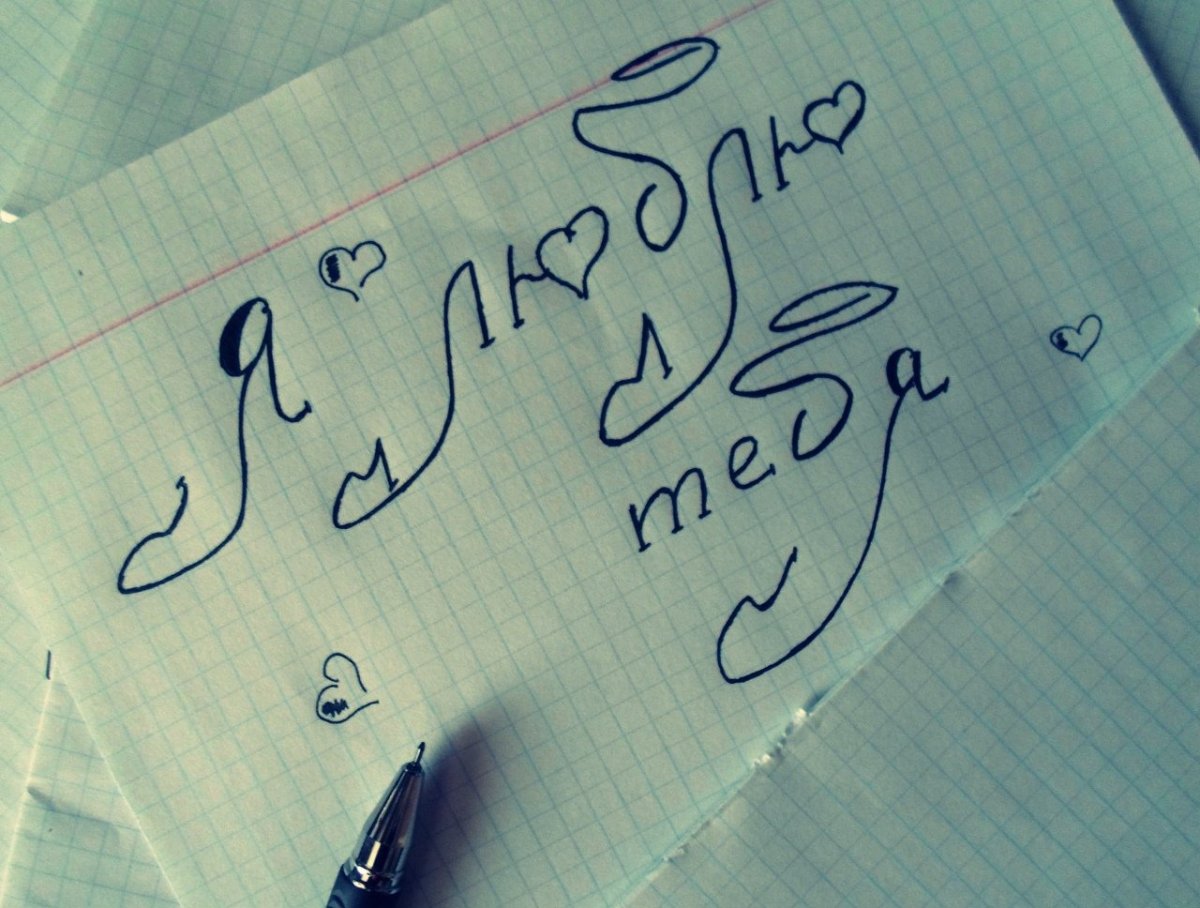 я люблю
тебя